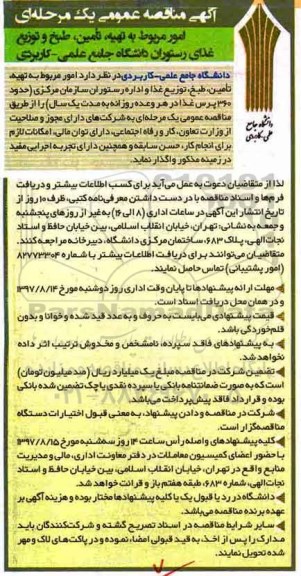 آگهی مناقصه عمومی یک مرحله‌ای
امور مربوط به تهیه، تأمین، طبخ و توزیع
غذای رستوران دانشگاه جامع علمی-کاربردی
دانشگاه جامع علمی-کاربردی در نظر دارد امور مربوط به تهیه،
تأمین، طبخ، توزیع غذا و اداره رستوران سازمان مرکزی (حدود
۳۶۰ پرس غذا در هر وعده روزانه به مدت یک سال) را از طریق
مناقصه عمومی یک مرحله‌ای به شرکت‌های دارای مجوز و صلاحیت
از وزارت تعاون، کار و رفاه اجتماعی، دارای توان مالی، امکانات لازم
برای انجام کار، حسن سابقه و همچنین دارای تجربه اجرایی مفید
در زمینه مذکور واگذار نماید.
دانشگاه جامع
علمی-کاربردی
لذا از متقاضیان دعوت به عمل می‌آید برای کسب اطلاعات بیشتر و دریافت
فرم‌ها و اسناد مناقصه با در دست داشتن معرفی‌نامه کتبی، ظرف ۱۰ روز از
تاریخ انتشار این آگهی در ساعات اداری (۸ الی ۱۶) به غیر از روزهای پنجشنبه
و جمعه به نشانی: تهران، خیابان انقلاب اسلامی، بین خیابان حافظ و استاد
نجات‌الهی، پلاک ۶۸۳، ساختمان مرکزی دانشگاه، دبیرخانه مراجعه کنند.
متقاضیان می‌توانند برای دریافت اطلاعات بیشتر با شماره ۸۲۷۷۲۳۰۴
(امور پشتیبانی) تماس حاصل نمایند.
مهلت ارائه پیشنهادها تا پایان وقت اداری روز دوشنبه مورخ ۱۳۹۷/۸/۱۴
و در همان محل دریافت اسناد است.
قیمت پیشنهادی می‌بایست به حروف و به عدد قید شده و خوانا و بدون
قلم‌خوردگی باشد.
به پیشنهادهای فاقد سپرده، نامشخص و مخدوش ترتیب اثر داده
نخواهد شد.
تضمین شرکت در مناقصه مبلغ یک میلیارد ریال (صد میلیون تومان)
است که به صورت ضمانتنامه بانکی یا سپرده نقدی یا چک تضمین شده بانکی
بوده و قرارداد فاقد پیش‌پرداخت می‌باشد.
شرکت در مناقصه و دادن پیشنهاد، به معنی قبول اختیارات دستگاه
مناقصه‌گزار است.
کلیه پیشنهادهای واصله رأس ساعت ۱۴ روز سه‌شنبه مورخ ۱۳۹۷/۸/۱۵
با حضور اعضای کمیسیون معاملات در دفتر معاونت اداری، مالی و مدیریت
منابع واقع در تهران، خیابان انقلاب اسلامی، بین خیابان حافظ و استاد
نجات‌الهی، شماره ۶۸۳، طبقه هفتم باز و قرائت خواهد شد.
دانشگاه در رد یا قبول یک یا کلیه پیشنهادها مختار بوده و هزینه آگهی بر
عهده برنده مناقصه می‌باشد.
سایر شرایط مناقصه در اسناد تصریح گشته و شرکت‌کنندگان باید
مدارک را پس از اخذ، به قید قبولی امضا، نموده و در پاکت‌های لاک و مهر
شده تحویل نمایند.